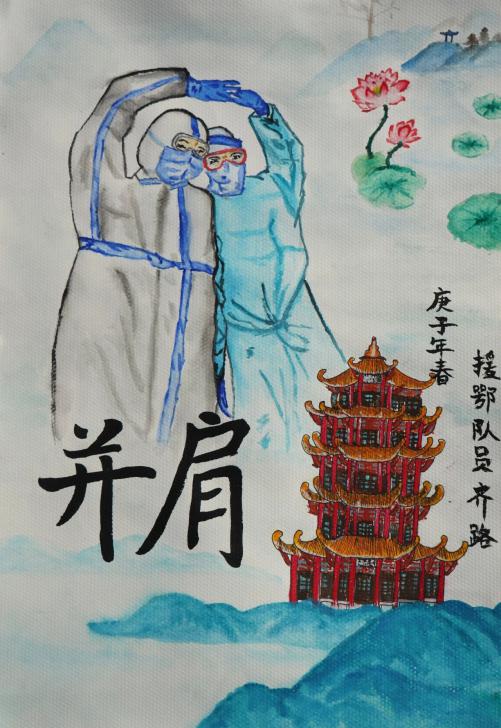 并肩
庚子年春
援鄂队员齐路